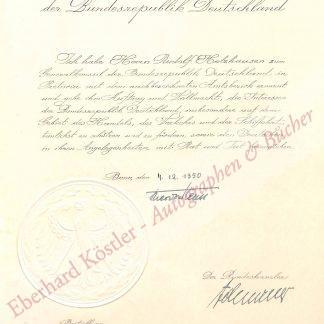 der Bundesrepublik Deutschland
Ich habe Herrn Rudolf Holzhausen zum
Generalkonsul der Bundesrepublik Deutschland in
Pretoria mit dem Amtsbezirk ernannt
und gebe ihm Auftrag und Vollmacht, die Interessen
der Bundesrepublik Deutschland, insbesondere auf dem
Gebiet des Handels, des Verkehrs und der Schiffahrt,
zu schützen und zu fördern, sowie den
in ihren Angelegenheiten mit Rat und Tat
Bonn, den 4. 12. 1950
Der Bundeskanzler
Adenauer
Eberhard Köstler - Autographen & Bücher